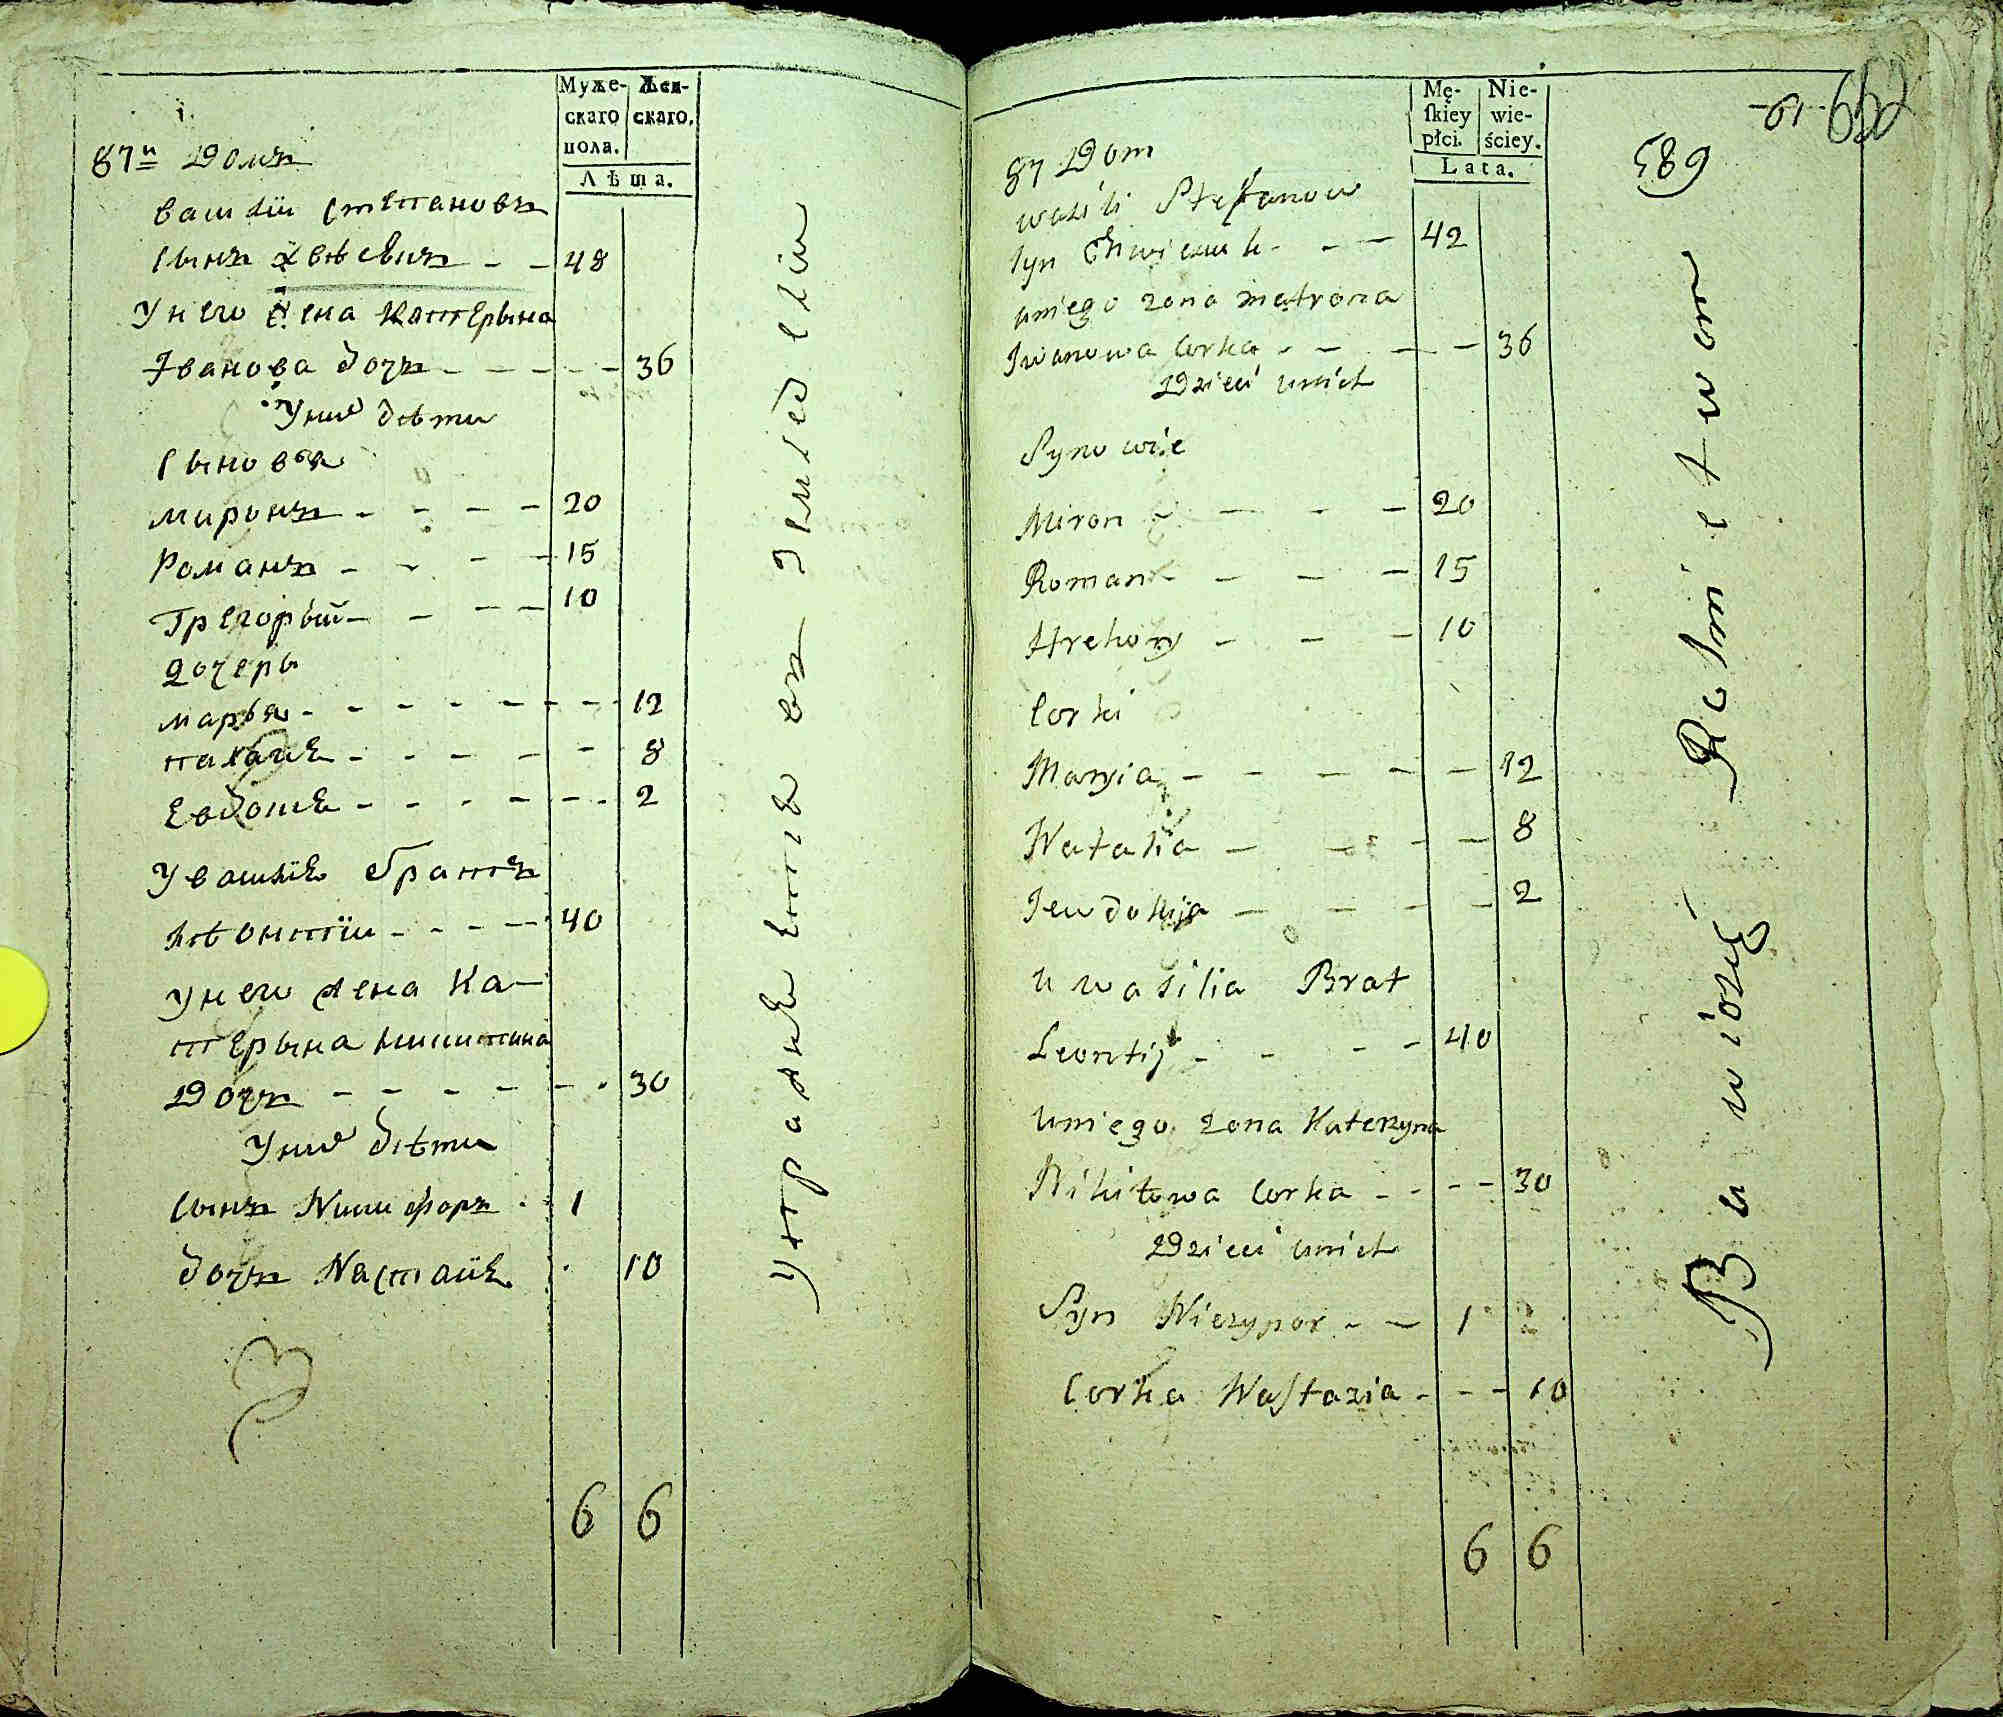 Муже-
скаго
пола.
Жен-
скаго.
Лѣта.
87й Домъ
васили Степановъ
сынъ
48
У него жена Катерына
Іванова дочъ
36
У нихъ дѣти
сыновя
миронъ
20
Романъ
15
Грегорый
10
дочеры
маръя
12
8
2
У василя братъ
Лѣонтіи
40
У него жена Ка-
терына Никитина
дочъ
30
У нихъ дѣти
сынъ Ничифоръ
1
дочъ
10
6 6
упражняется въ земледелии
Mę-
ſkiey
płci.
Nie-
wie-
ściey.
Lata.
689
87 Dom
wasili Stefanow
syn
42
u niego zona matrona
Iwanowa Corka
36
Dzieci unich
Synowie
Miron
20
Roman
15
Hrehory
10
Corki
Maryia
12
Natalia
8
Jewdokija
2
u wasilia Brat
Leontij
40
u niego zona Katerzyna
Nikitowa Corka
30
Dzieci unich
Syn Niczypor
1
Corka Naſtazia
10
6 6
Bawiący Rolnictwom